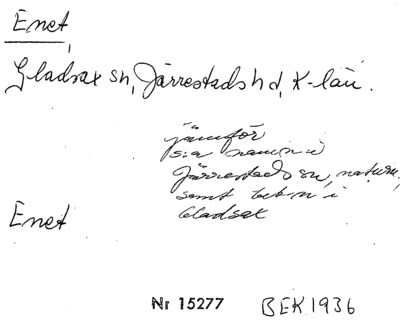 Enet
Gladsax sn, Järrestads hd, K-län.
jämför
s:a namn i
Järrestads sn, naturn.,
samt bebn i
Gladsax
Enet
Nr 15277 BEK 1936